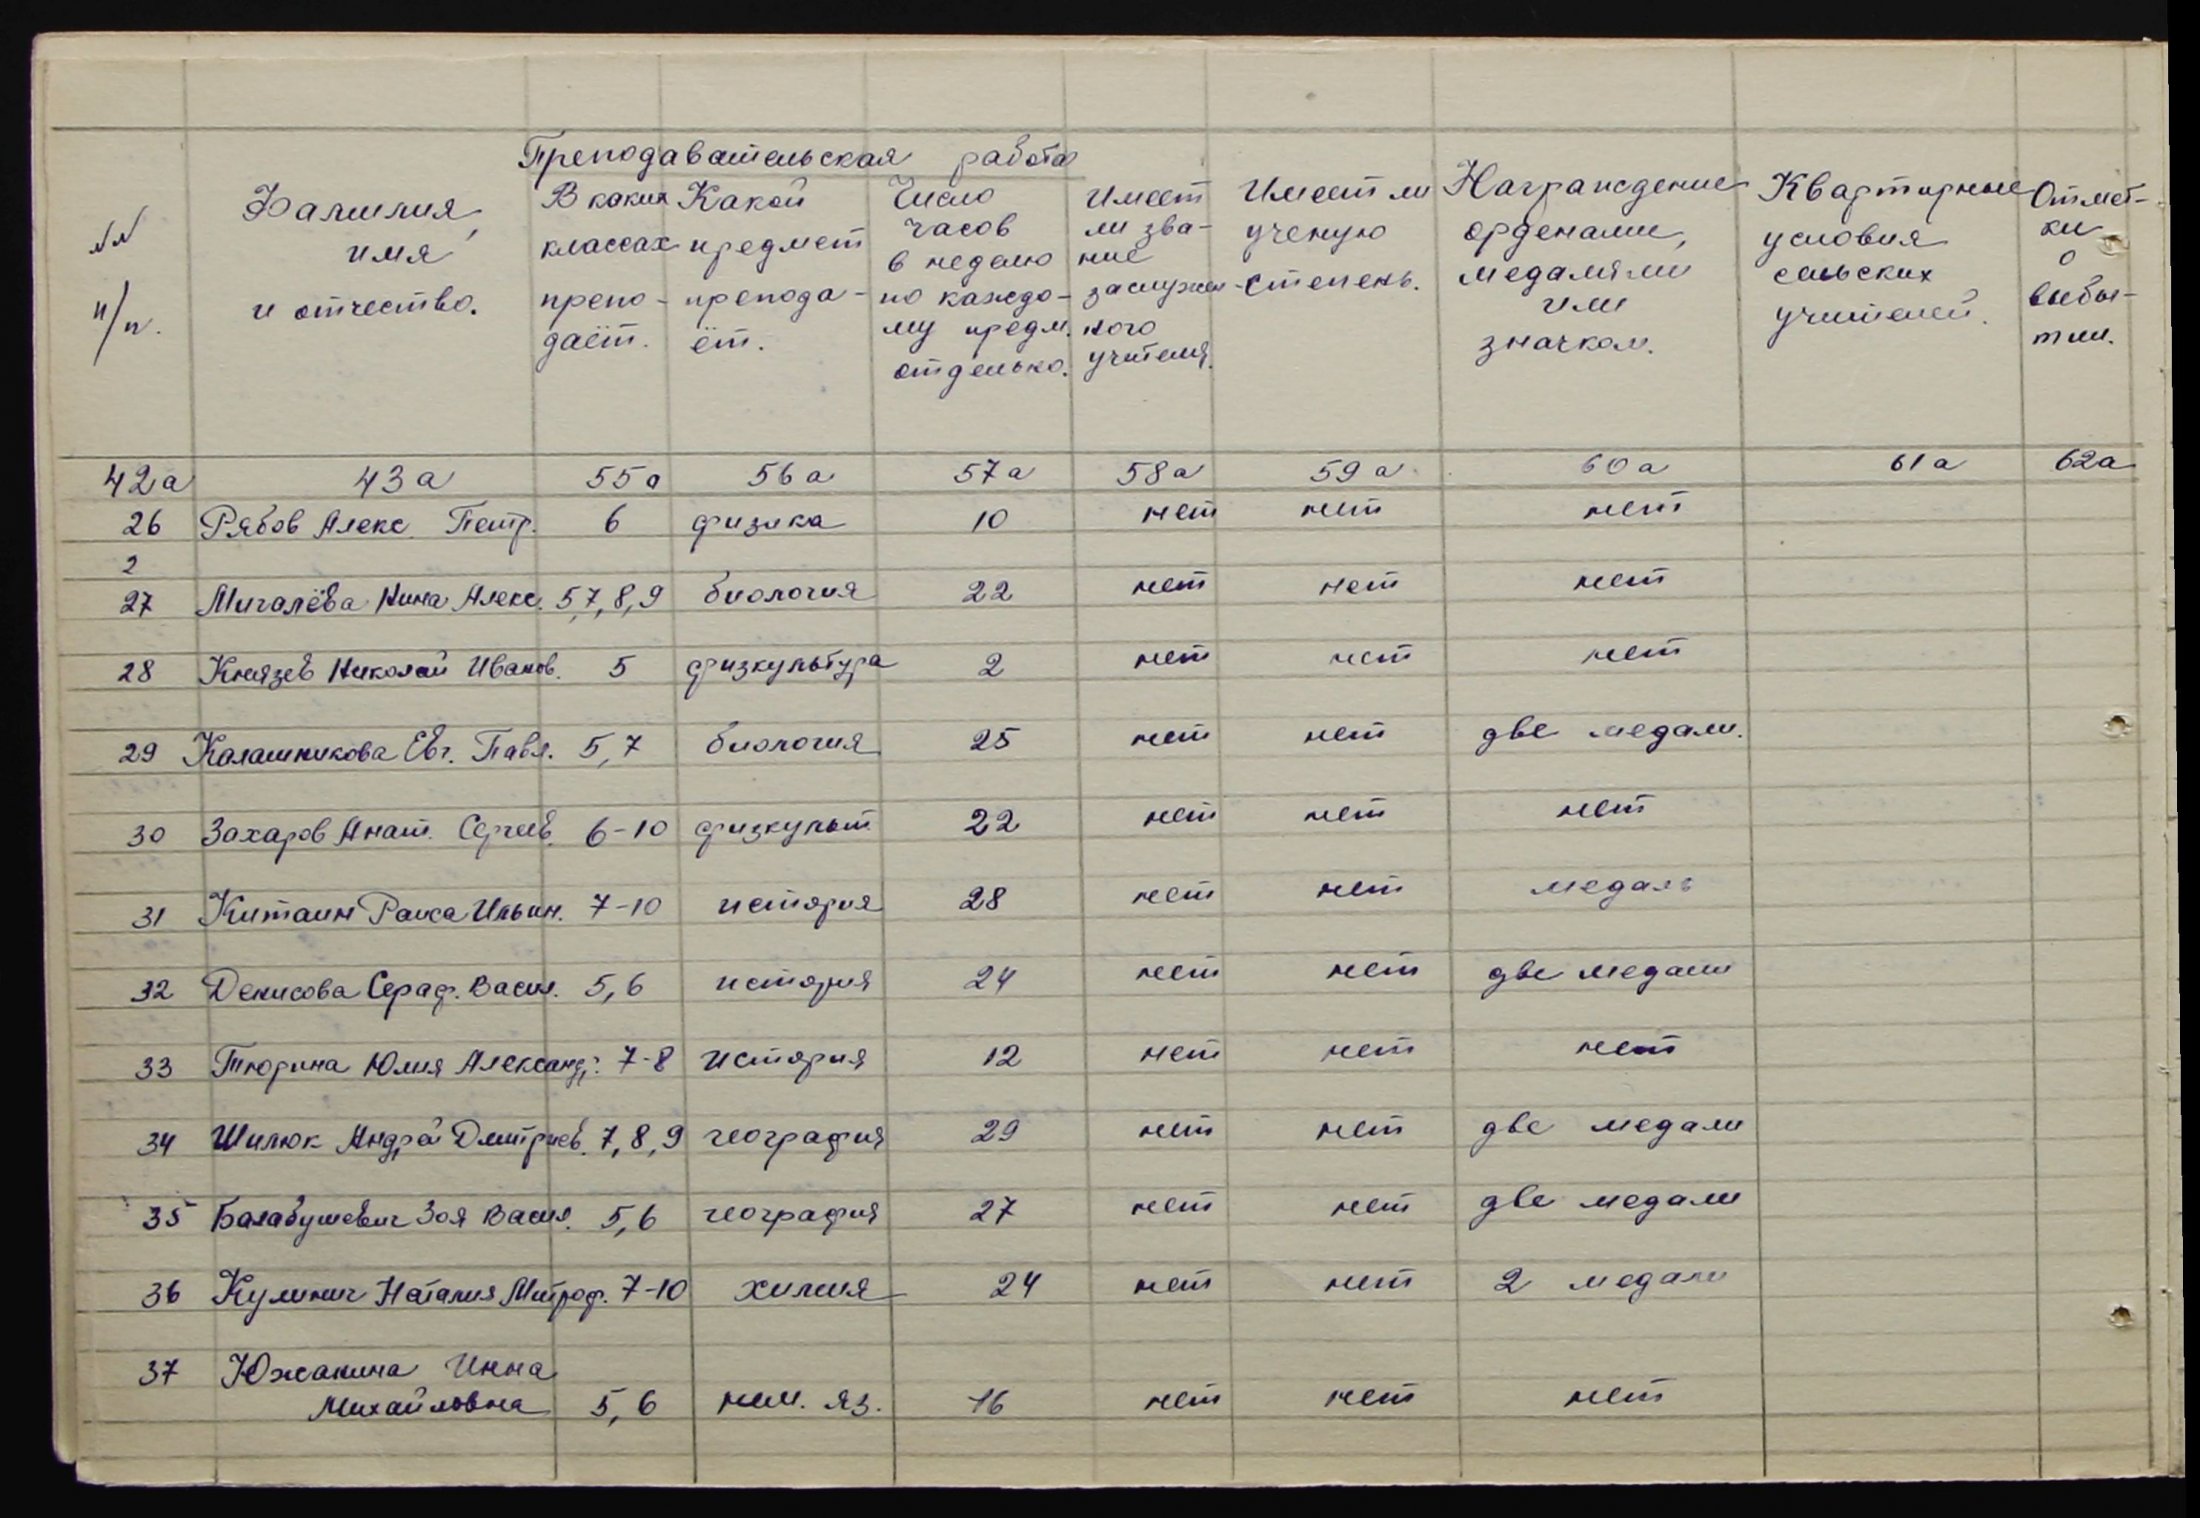 Преподавательская работа
№№ п/п.
Фамилия, имя и отчество.
В каких классах препо- даёт.
Какой предмет препода- ёт.
Число часов в неделю по каждо- му предм. отдельно.
Имеет ли зва- ние заслужен- ного учителя.
Имеет ли ученую степень.
Награждение орденами, медалями или значком.
Квартирные условия сельских учителей.
Отмет- ки о выбы- тии.
42а 43а 55а 56а 57а 58а 59а 60а 61а 62а
26 Рябов Алекс. Петр. 6 физика 10 нет нет нет
2
27 Мигалёва Нина Алекс. 5,7,8,9 биология 22 нет нет нет
28 Князев Николай Иванов. 5 физкультура 2 нет нет нет
29 Калашникова Евг. Павл. 5,7 биология 25 нет нет две медали.
30 Захаров Анат. Сергеев. 6-10 физкульт. 22 нет нет нет
31 Китаин Раиса Ильин. 7-10 история 28 нет нет медаль
32 Денисова Сераф. Васил. 5,6 история 24 нет нет две медали
33 Тюрина Юлия Александ. 7-8 история 12 нет нет нет
34 Шилюк Андрей Дмитриев. 7,8,9 география 29 нет нет две медали
35 Балабушевич Зоя Васил. 5,6 география 27 нет нет две медали
36 Кулинич Наталия Митроф. 7-10 химия 24 нет нет 2 медали
37 Южанина Инна
Михайловна 5,6 нем. яз. 16 нет нет нет